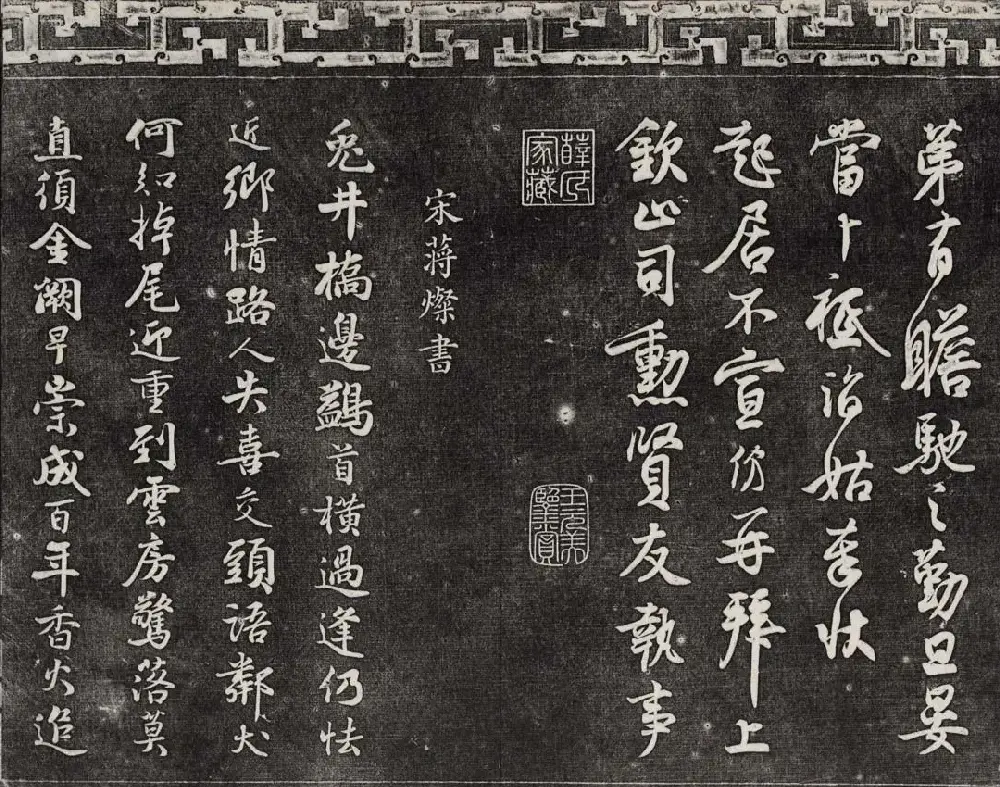 第有瞻馳之勤旦晏
當卜祗詣姑奉狀
起居不宣份再拜上
欽止司勳賢友執事
薛氏家藏
王元美鑒賞
宋蔣燦書
兎井橋邊鷁首橫過逢仍怯
近鄉情路人失喜交頭語鄰犬
何知掉尾迎重到雲房驚落莫
直須金闕早崇成百年香火追